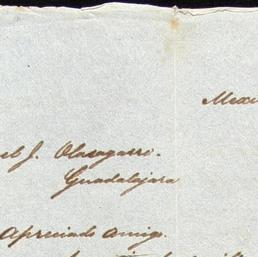 Mexi
el J. Olasagarri.
Guadalajara
Apreciado Amigo.